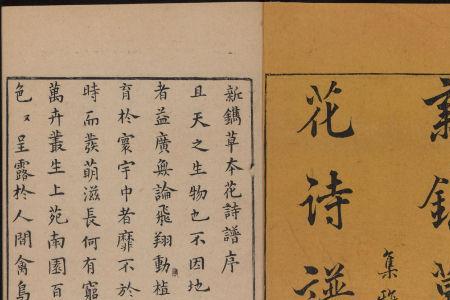 新鐫草
花詩譜
集雅
新鐫草本花詩譜序
且天之生物也不因地
者益廣無論飛翔動植
育於寰宇中者靡不於
時而發萌滋長何有窮
萬卉叢生上苑南園百
色々呈露於人間禽鳥